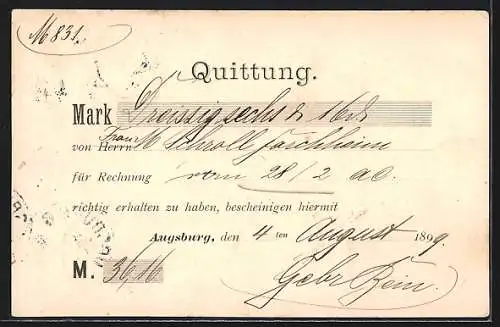 M 831.
Quittung.
Mark Dreissigsechs & 16 d
Frau
von Herrn M Schroll
für Rechnung vom 28/2 ac.
richtig erhalten zu haben, bescheinigen hiermit
Augsburg, den 4 ten August 1899.
M. 36,16
Gebr